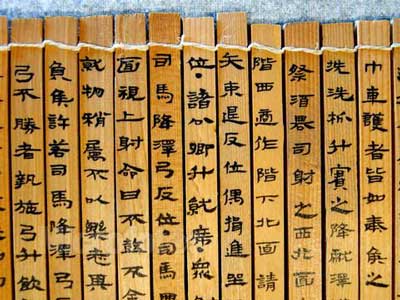 巾車護者皆如奉矦之
洗洗升賓之降獻澤
祭酒司射之西北面
階西適作階下北面請
矢束是反位偶揖進坐
位·諸公卿升就席·衆
司馬降澤弓反位·司馬
面視上射命曰不鼓不
就物稍屬不以樂志
負矦許若司馬降澤弓
弓不勝者執施弓升飲